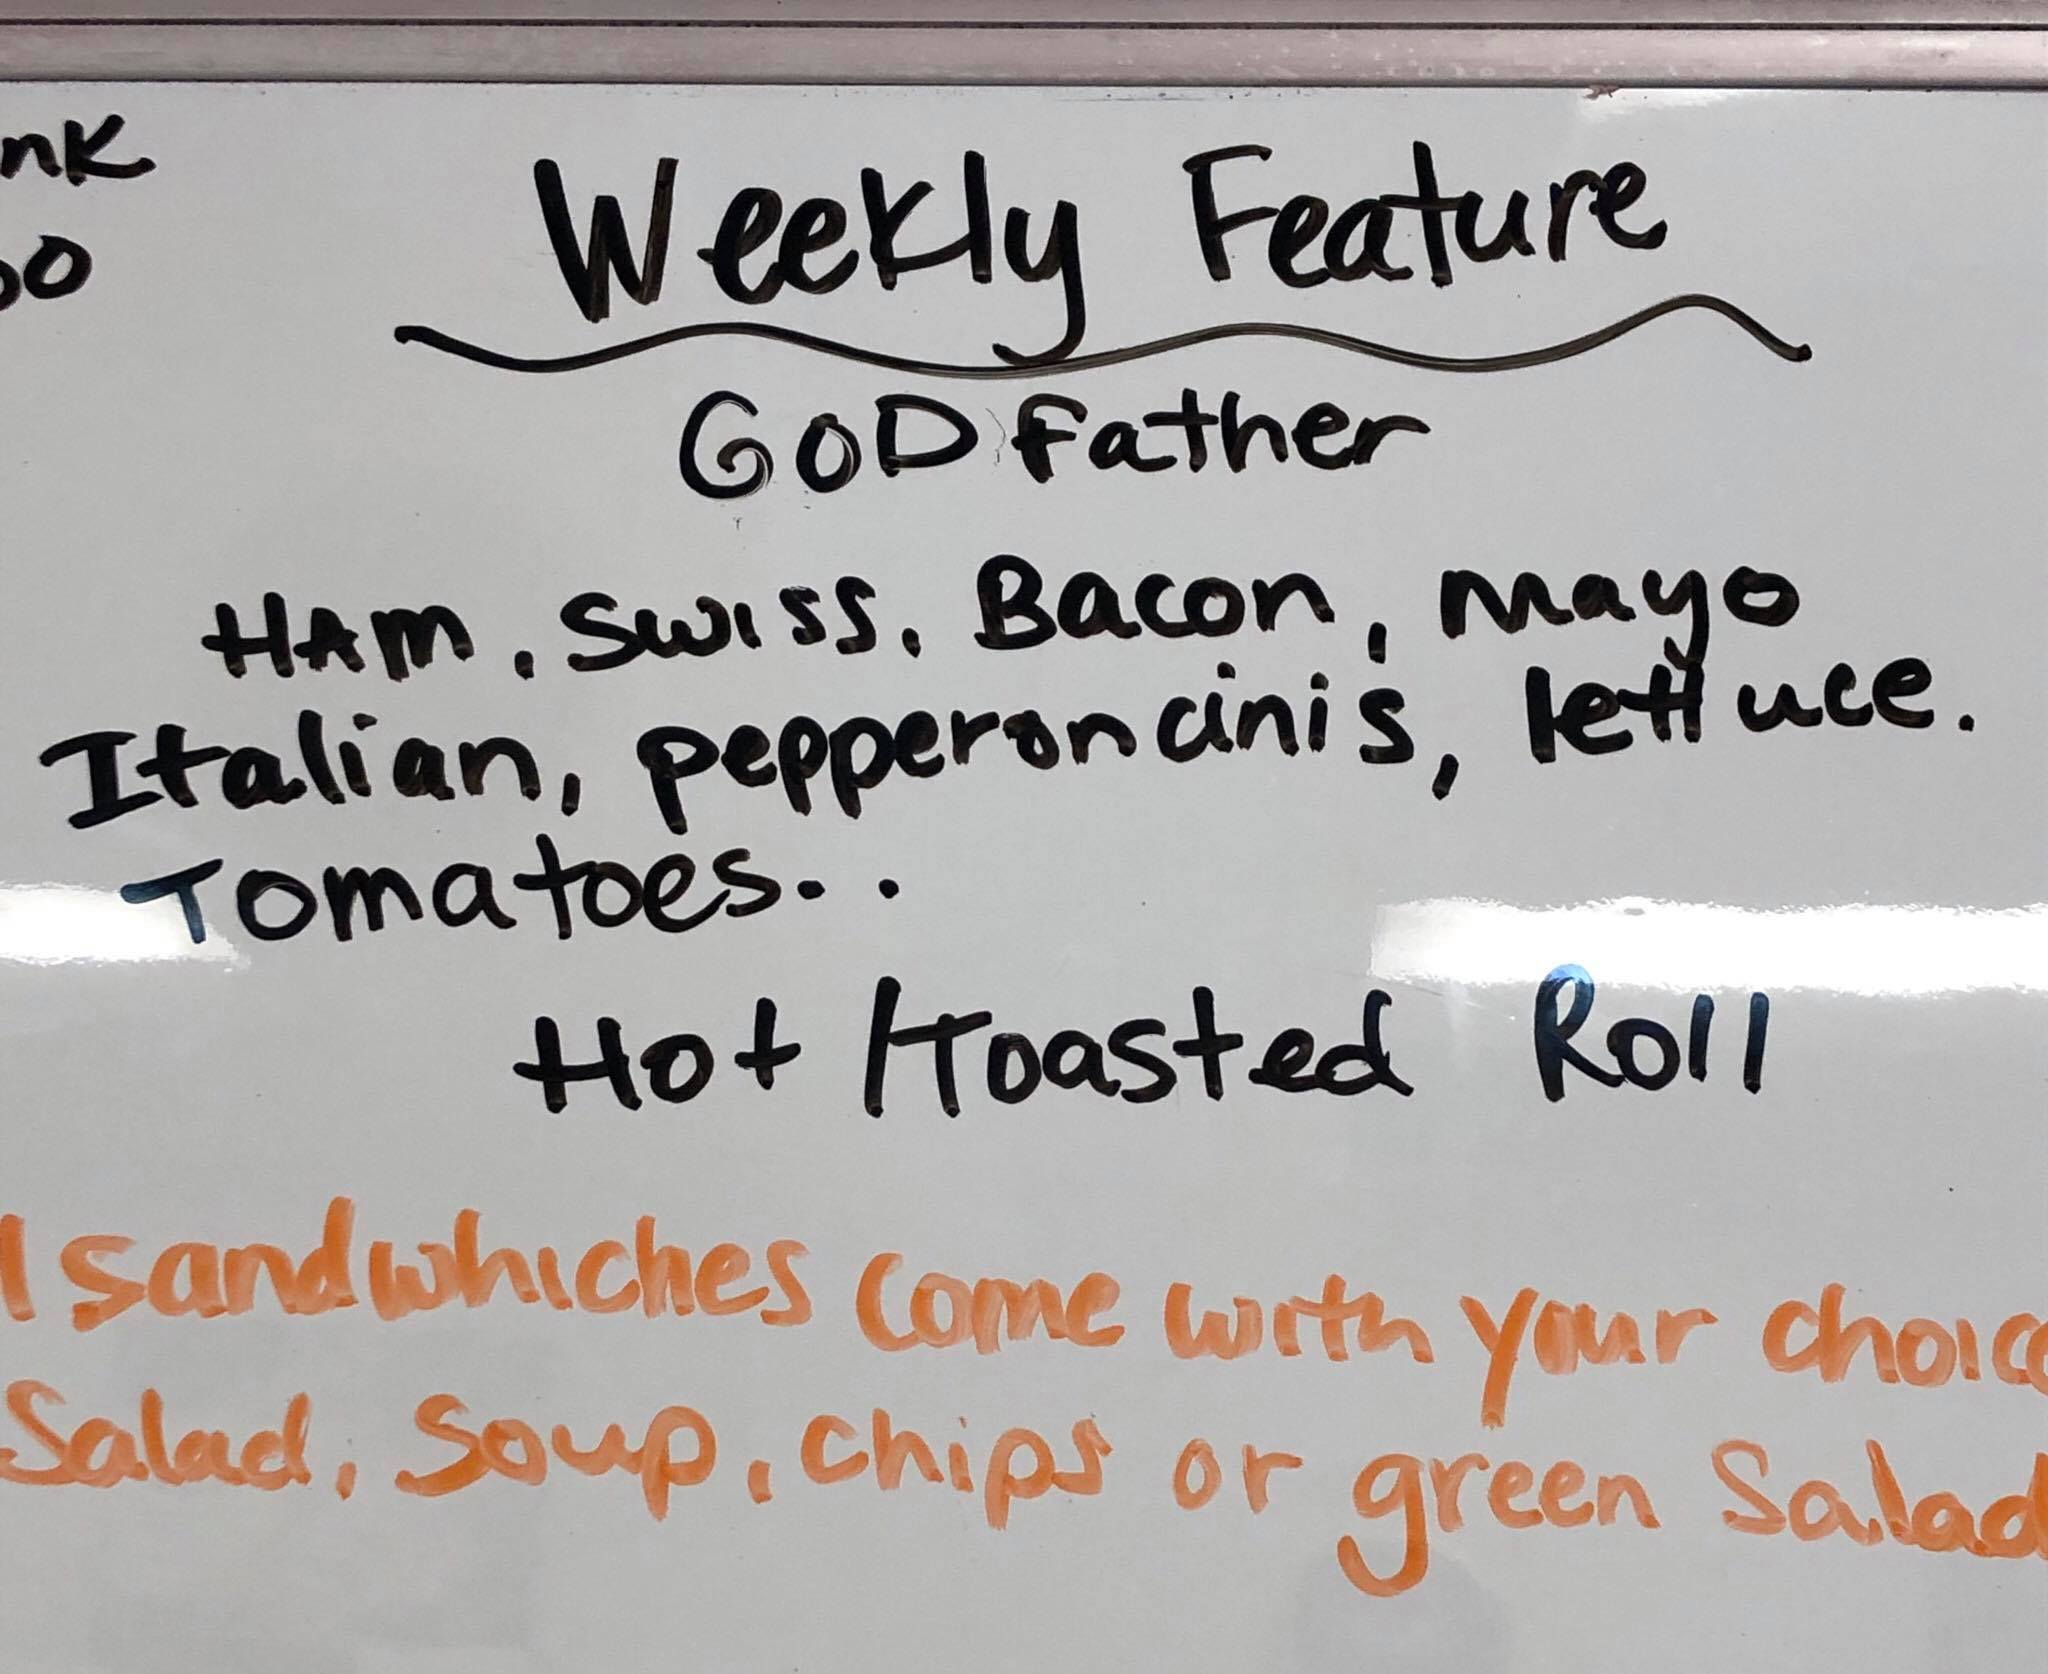 Weekly Feature
GODfather
HAm, Swiss, Bacon, mayo
Italian, pepperoncinis, lettuce.
Tomatoes..
Hot /Toasted Roll
sandwhiches come with your choic
Salad, Soup, chips or green Salad